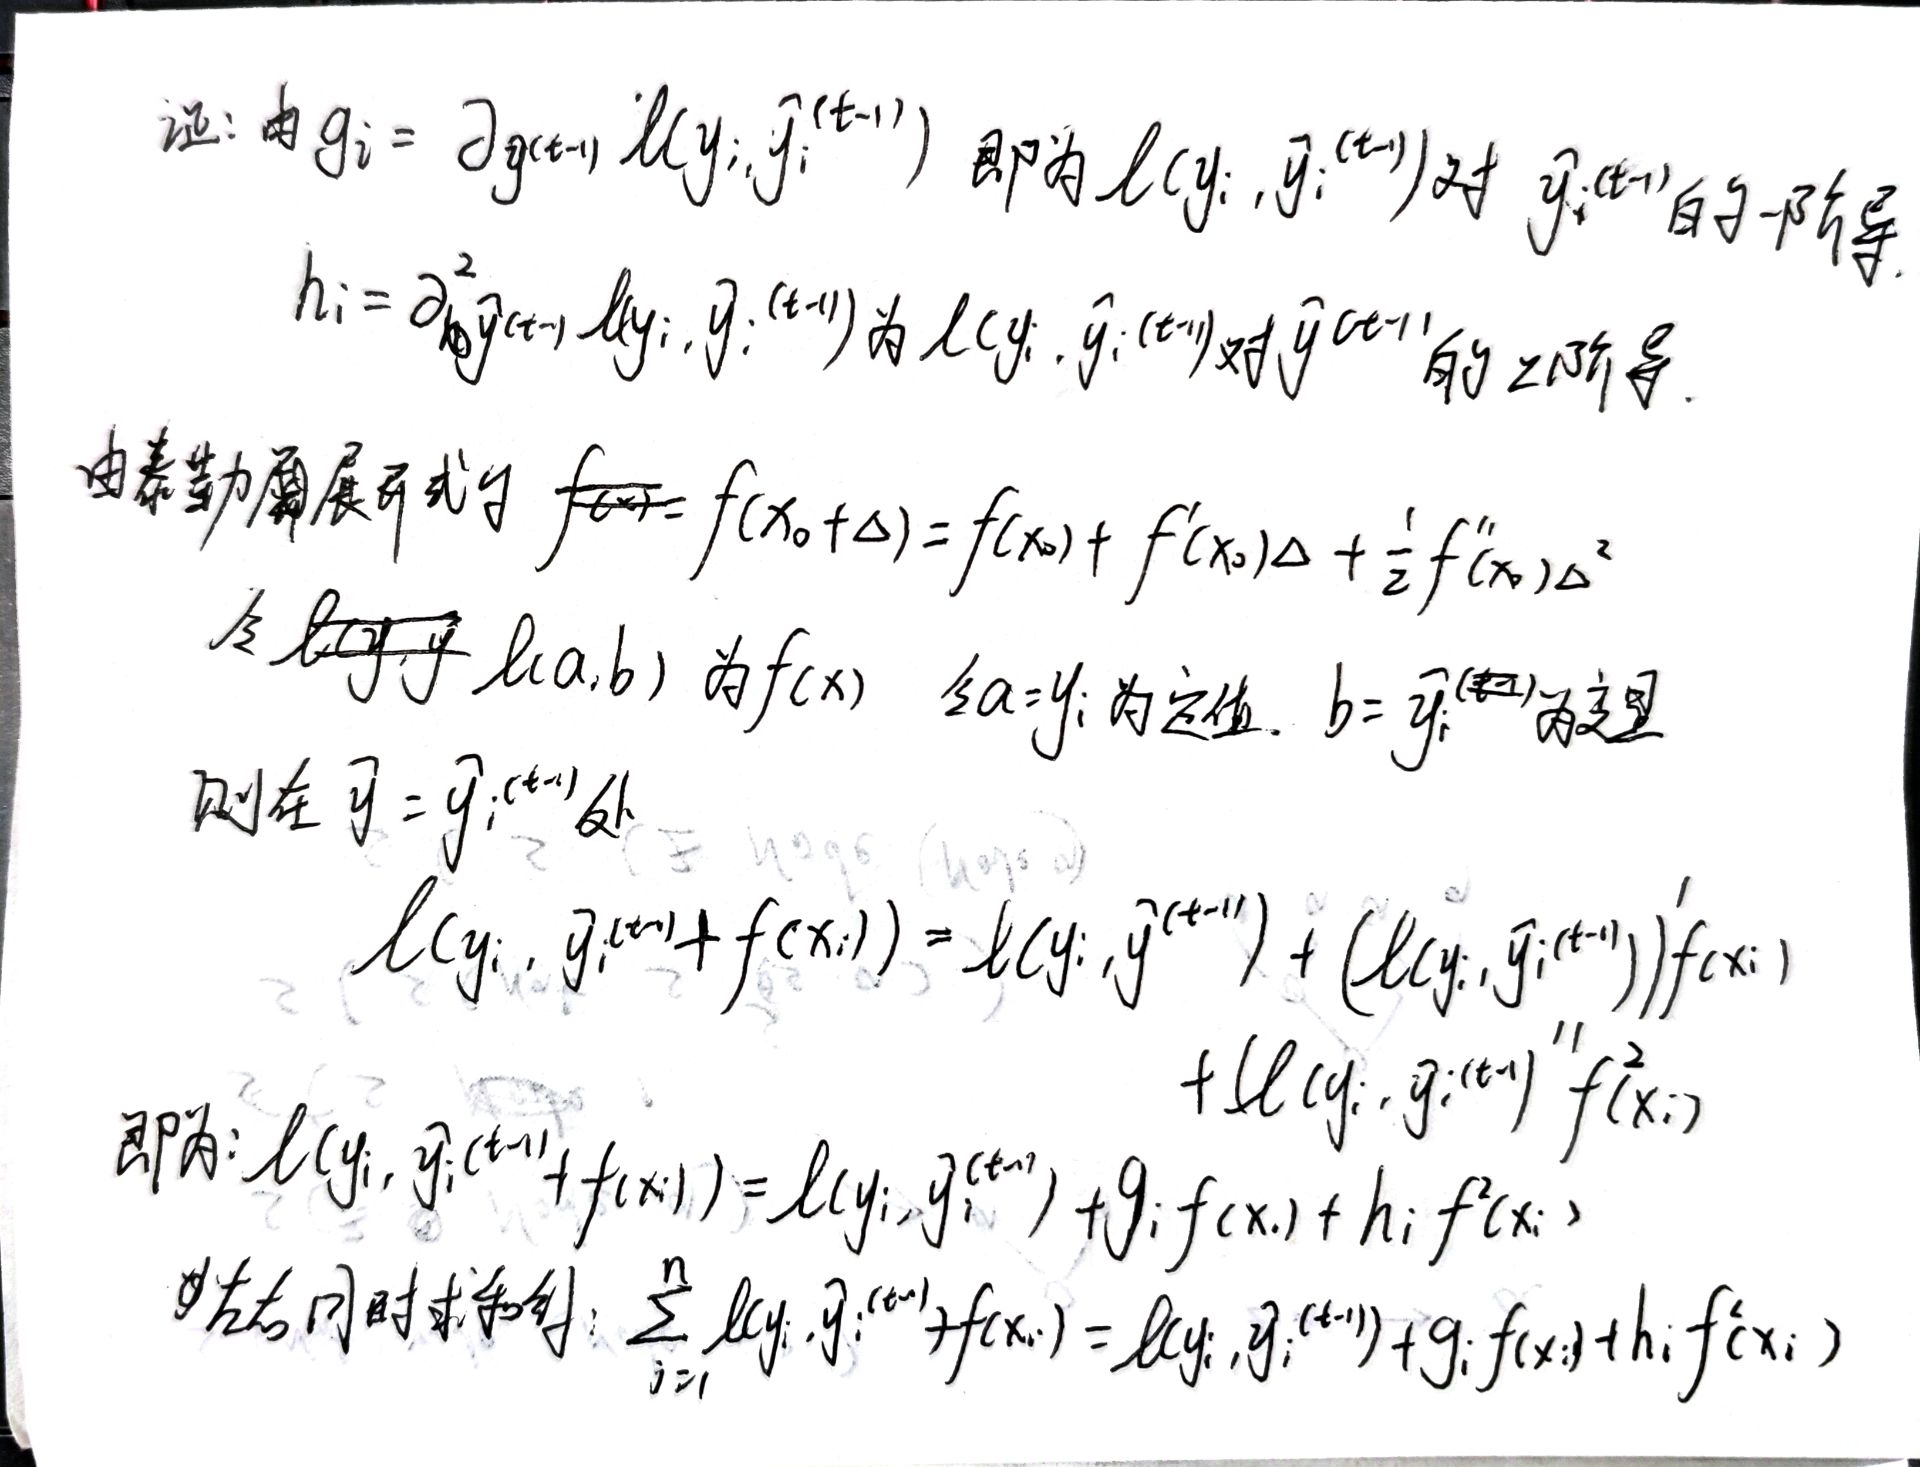 证: 由 gᵢ = ∂ŷ(t-1) l(yᵢ, ŷᵢ^(t-1)) 即为 l(yᵢ, ŷᵢ^(t-1)) 对 ŷᵢ^(t-1) 的一阶导.
hᵢ = ∂²ŷ(t-1) l(yᵢ, ŷᵢ^(t-1)) 为 l(yᵢ, ŷᵢ^(t-1)) 对 ŷ^(t-1) 的2阶导.
由泰勒展开式 f(x₀+Δ) = f(x₀) + f'(x₀)Δ + ½ f''(x₀)Δ²
令 l(a,b) 为 f(x) 令 a=yᵢ 为定值. b=ŷᵢ 为变量
则在 ŷ = ŷᵢ^(t-1) 处
l(yᵢ, ŷᵢ^(t-1) + f(xᵢ)) = l(yᵢ, ŷ^(t-1)) + (l(yᵢ, ŷᵢ^(t-1)))' f(xᵢ)
+ (l(yᵢ, ŷᵢ^(t-1))'' f²(xᵢ)
即为: l(yᵢ, ŷᵢ^(t-1) + f(xᵢ)) = l(yᵢ, ŷᵢ^(t-1)) + gᵢ f(xᵢ) + hᵢ f²(xᵢ)
左右同时求和得: ∑ᵢ₌₁ⁿ l(yᵢ, ŷᵢ^(t-1) + f(xᵢ) = l(yᵢ, ŷᵢ^(t-1)) + gᵢ f(xᵢ) + hᵢ f²(xᵢ)